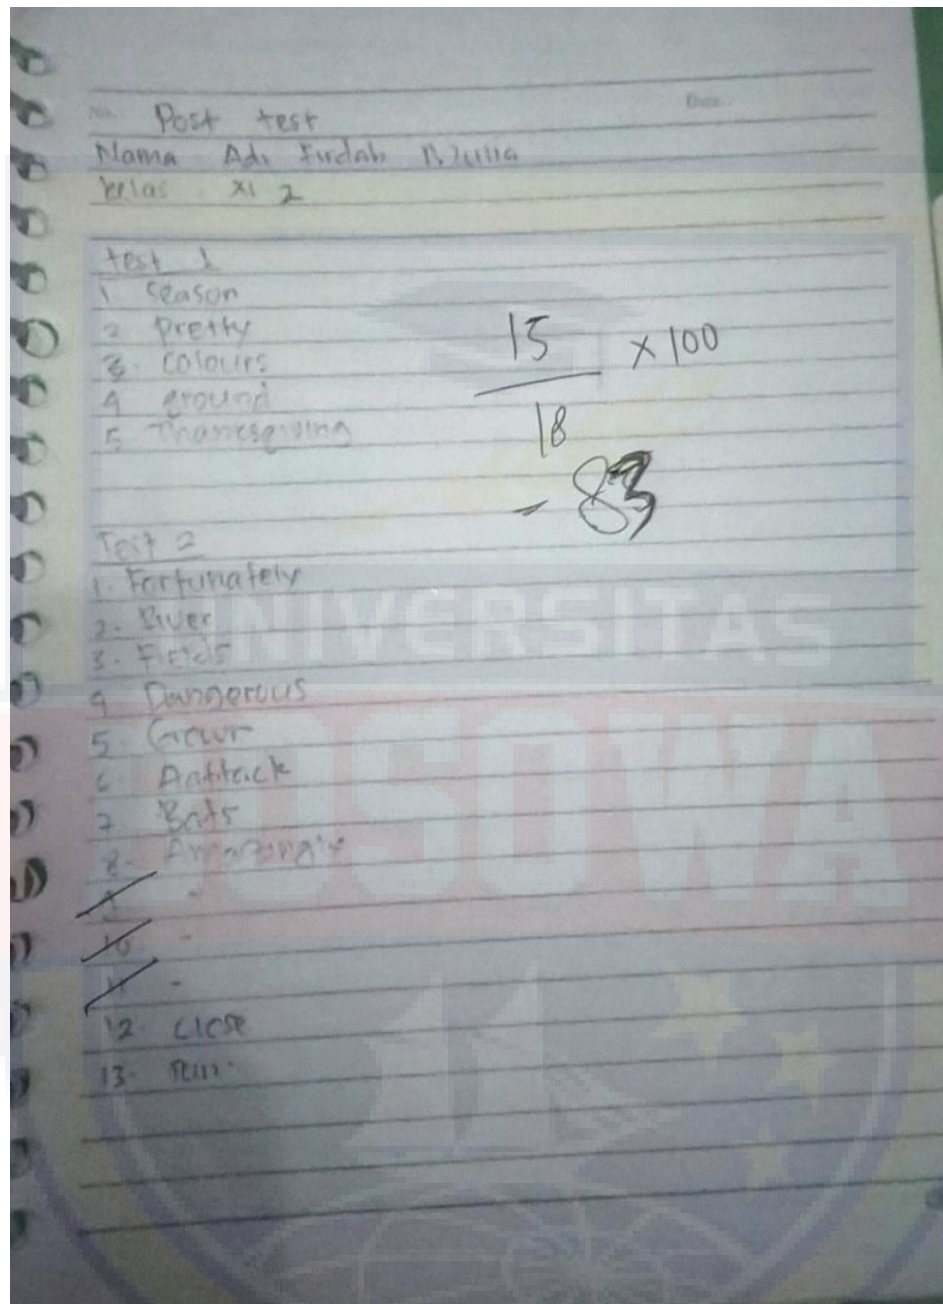 No.
Date
Post test
Nama Adi Firdah
kelas XI 2
test 1
1 season
2 pretty
3. colours
4 ground
5
15
18
× 100
- 83
Test 2
1. Fortunately
2. River
3. Fields
4. Dangerous
5.
6 Anttack
7. Bats
8.
9 -
10 -
11 -
12. close
13.
UNIVERSITAS
BOSOWA